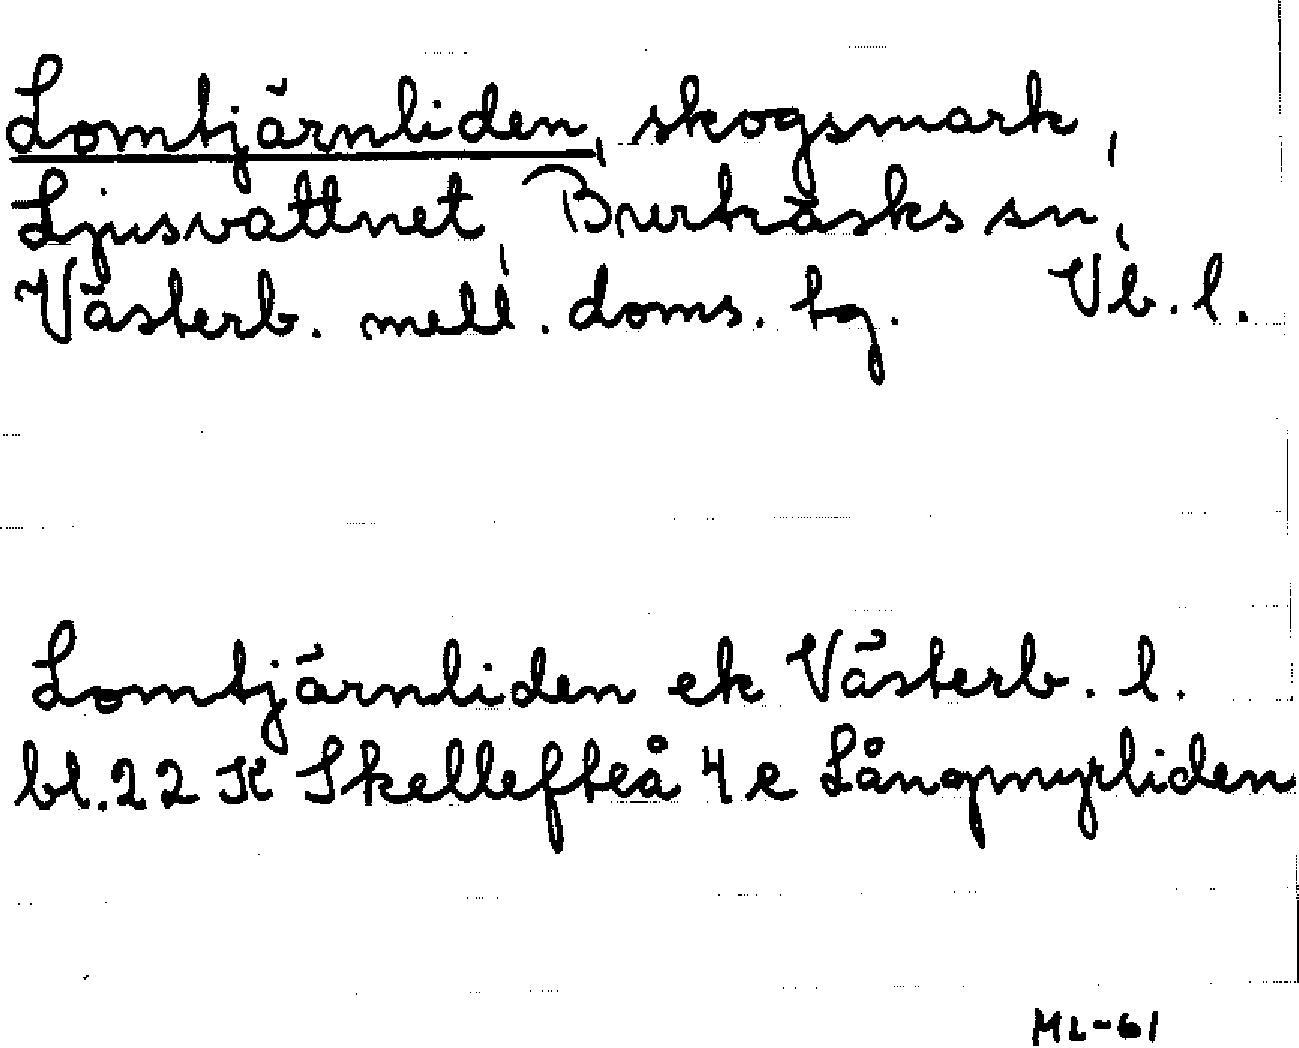 Lomtjärnliden, skogsmark,
Ljusvattnet, Burträsks sn,
Västerb. mell. doms. tg. Vb. l.
Lomtjärnliden ek Västerb. l.
bl. 22 K Skellefteå 4 e Långmyrliden
ML-61